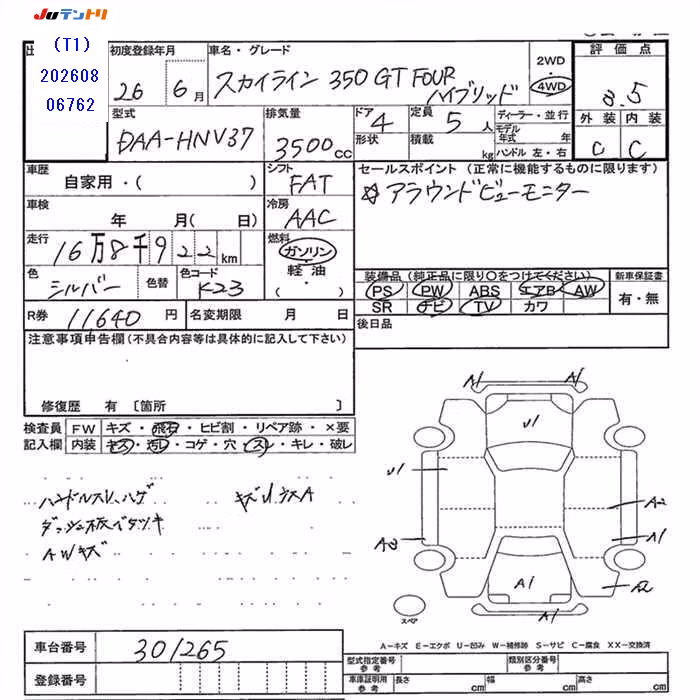 JUテントリ
(T1)
202608
06762
初度登録年月
26 6月
車名・グレード
スカイライン 350 GT FOUR
ハイブリッド
2WD
4WD
評価点
3.5
外装 内装
C C
型式
DAA-HNV37
排気量
3500cc
ドア 4
形状
定員 5人
積載 kg
ディーラー・並行
モデル年式 年
ハンドル 左・右
車歴
自家用・( )
シフト
FAT
セールスポイント (正常に機能するものに限ります)
☆アラウンドビューモニター
車検
年 月( 日)
冷房
AAC
走行
16万8千922km
燃料
ガソリン
軽油・
( )
色
シルバー
色替
色コード
K23
装備品(純正品に限り○をつけてください)
新車保証書
PS PW ABS エアB AW
有・無
SR ナビ TV カワ
R券 11640円
名変期限 月 日
後日品
注意事項申告欄(不具合内容等は具体的に記入して下さい)
修復歴 有 〔箇所 〕
検査員 FW キズ・飛石・ヒビ割・リペア跡・×要
記入欄 内装 キズ・汚レ・コゲ・穴・スレ・キレ・破レ
ハンドルスレ、ハゲ
ダッシュ板イタツキ
AWキズ
A1 A1
U1
U1
A2
A1
A3
A1
A2
A1
スペア
A-キズ E-エクボ U-凹み W-補修跡 S-サビ C-腐食 XX-交換済
車台番号 301265
登録番号
型式指定番号 参考
類別区分番号 参考
車庫証明用 参考
長さ cm
幅 cm
高さ cm